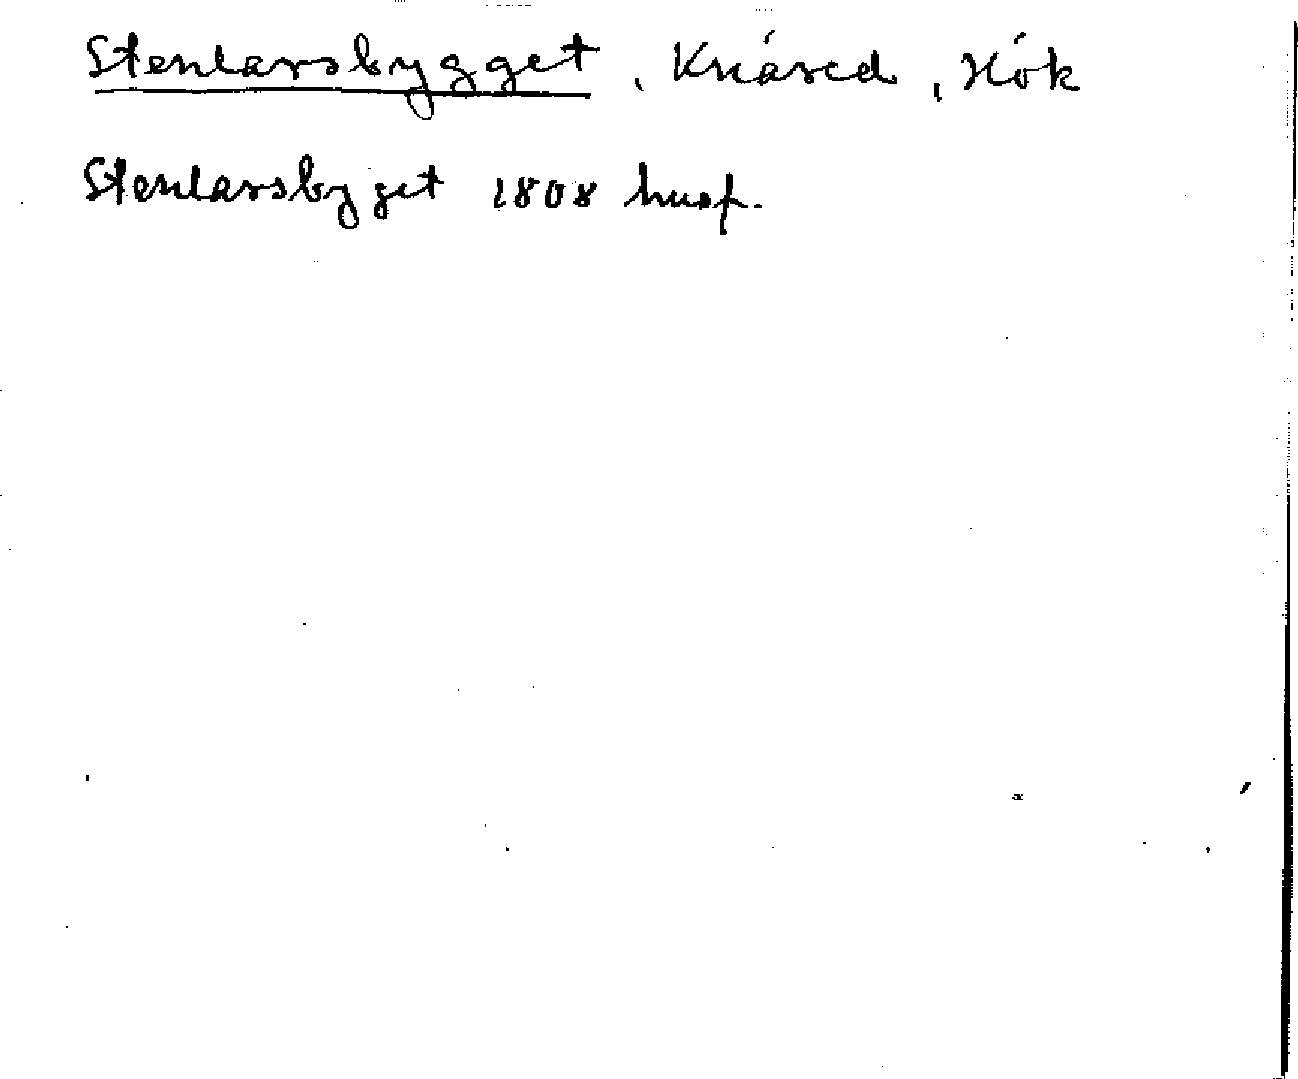 Stenlarsbygget, Knäred, Hök
Stenlarsbyget 1808 husf.